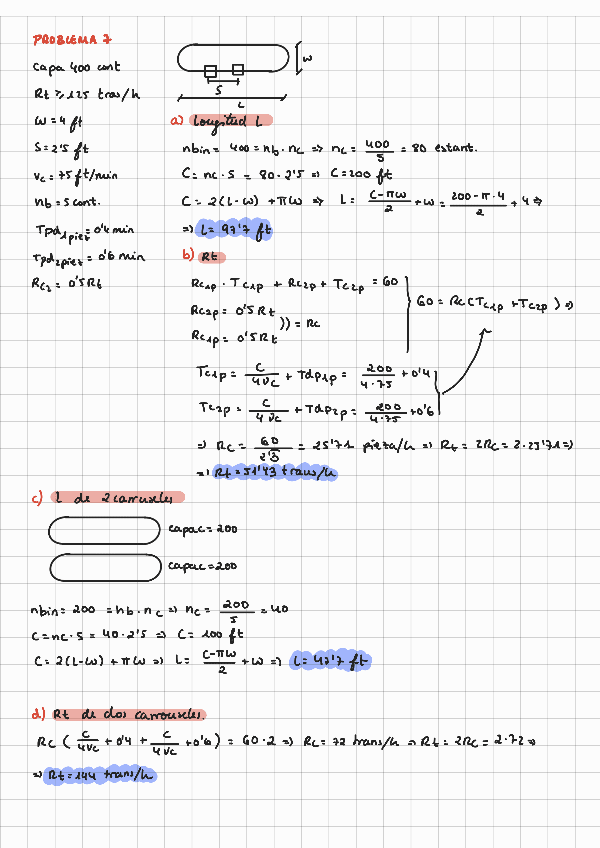 PROBLEMA 7
Capa 400 cont
Rt ≥ 125 tras/h
W = 4 ft
S = 2'5 ft
Vc = 75 ft/min
nb = 5 cont.
Tpd1piez = 0'4 min
Tpd2piez = 0'6 min
Rc2 = 0'5 Rt
W
S
L
a) Longitud L
nbin = 400 = nb · nc ⇒ nc = 400/5 = 80 estant.
C = nc · S = 80 · 2'5 ⇒ C = 200 ft
C = 2(L-W) + πW ⇒ L = (C-πW)/2 + W = (200-π·4)/2 + 4 ⇒
⇒ L = 97'7 ft
b) Rt
Rc1p · Tc1p + Rc2p + Tc2p = 60
Rc2p = 0'5 Rt
Rc1p = 0'5 Rt
)) = Rc
60 = Rc(Tc1p + Tc2p) ⇒
Tc1p = C/4Vc + Tdp1p = 200/4·75 + 0'4
Tc2p = C/4Vc + Tdp2p = 200/4·75 + 0'6
⇒ Rc = 60/2'3 = 25'71 pieza/h ⇒ Rt = 2Rc = 2·25'71 ⇒
⇒ Rt = 51'43 trans/h
c) L de 2 carruseles
capac = 200
capac = 200
nbin = 200 = nb · nc ⇒ nc = 200/5 = 40
C = nc · S = 40 · 2'5 ⇒ C = 100 ft
C = 2(L-W) + πW ⇒ L = (C-πW)/2 + W ⇒ L = 47'7 ft
d) Rt de dos carrouseles.
Rc (C/4Vc + 0'4 + C/4Vc + 0'6) = 60·2 ⇒ Rc = 72 trans/h ⇒ Rt = 2Rc = 2·72 ⇒
⇒ Rt = 144 trans/h